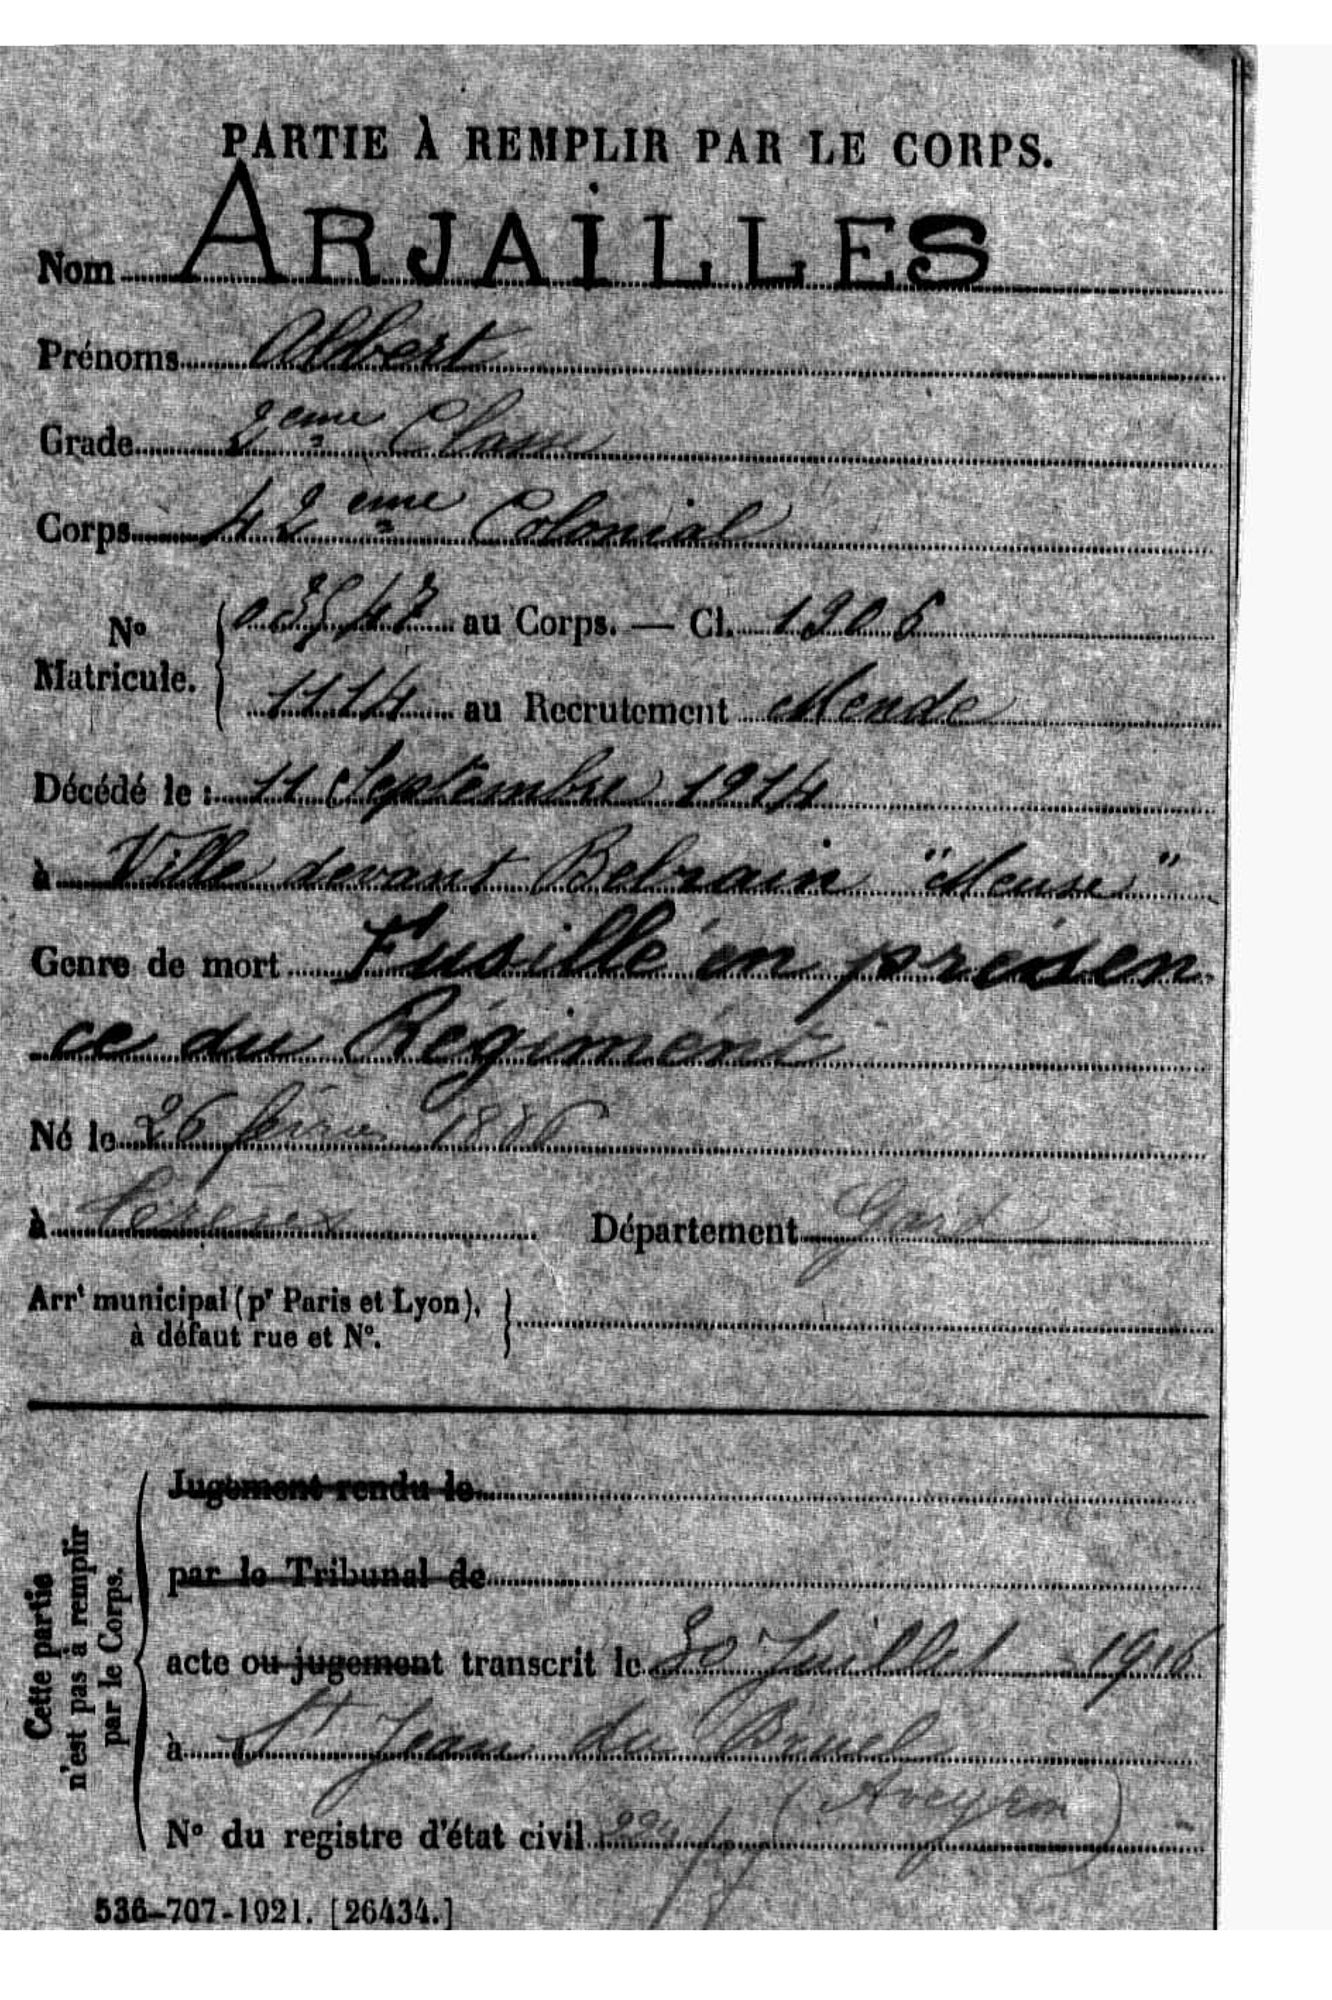 PARTIE À REMPLIR PAR LE CORPS.
Nom ARJAILLES
Prénoms Albert
Grade 2ème Classe
Corps 42ème Colonial
No Matricule. 03547 au Corps. — Cl. 1906
1114 au Recrutement Mende
Décédé le : 11 Septembre 1914
à Ville devant Belrain "Meuse"
Genre de mort Fusillé en présen
ce du Régiment
Né le 26 1886
à Département Gard
Arrt municipal (pr Paris et Lyon),
à défaut rue et No.
Cette partie
n'est pas à remplir
par le Corps.
Jugement rendu le
par le Tribunal de
acte ou jugement transcrit le 30 Juillet 1916
à St Jean du Bruel
(Aveyron)
No du registre d'état civil
536-707-1921. [26434.]